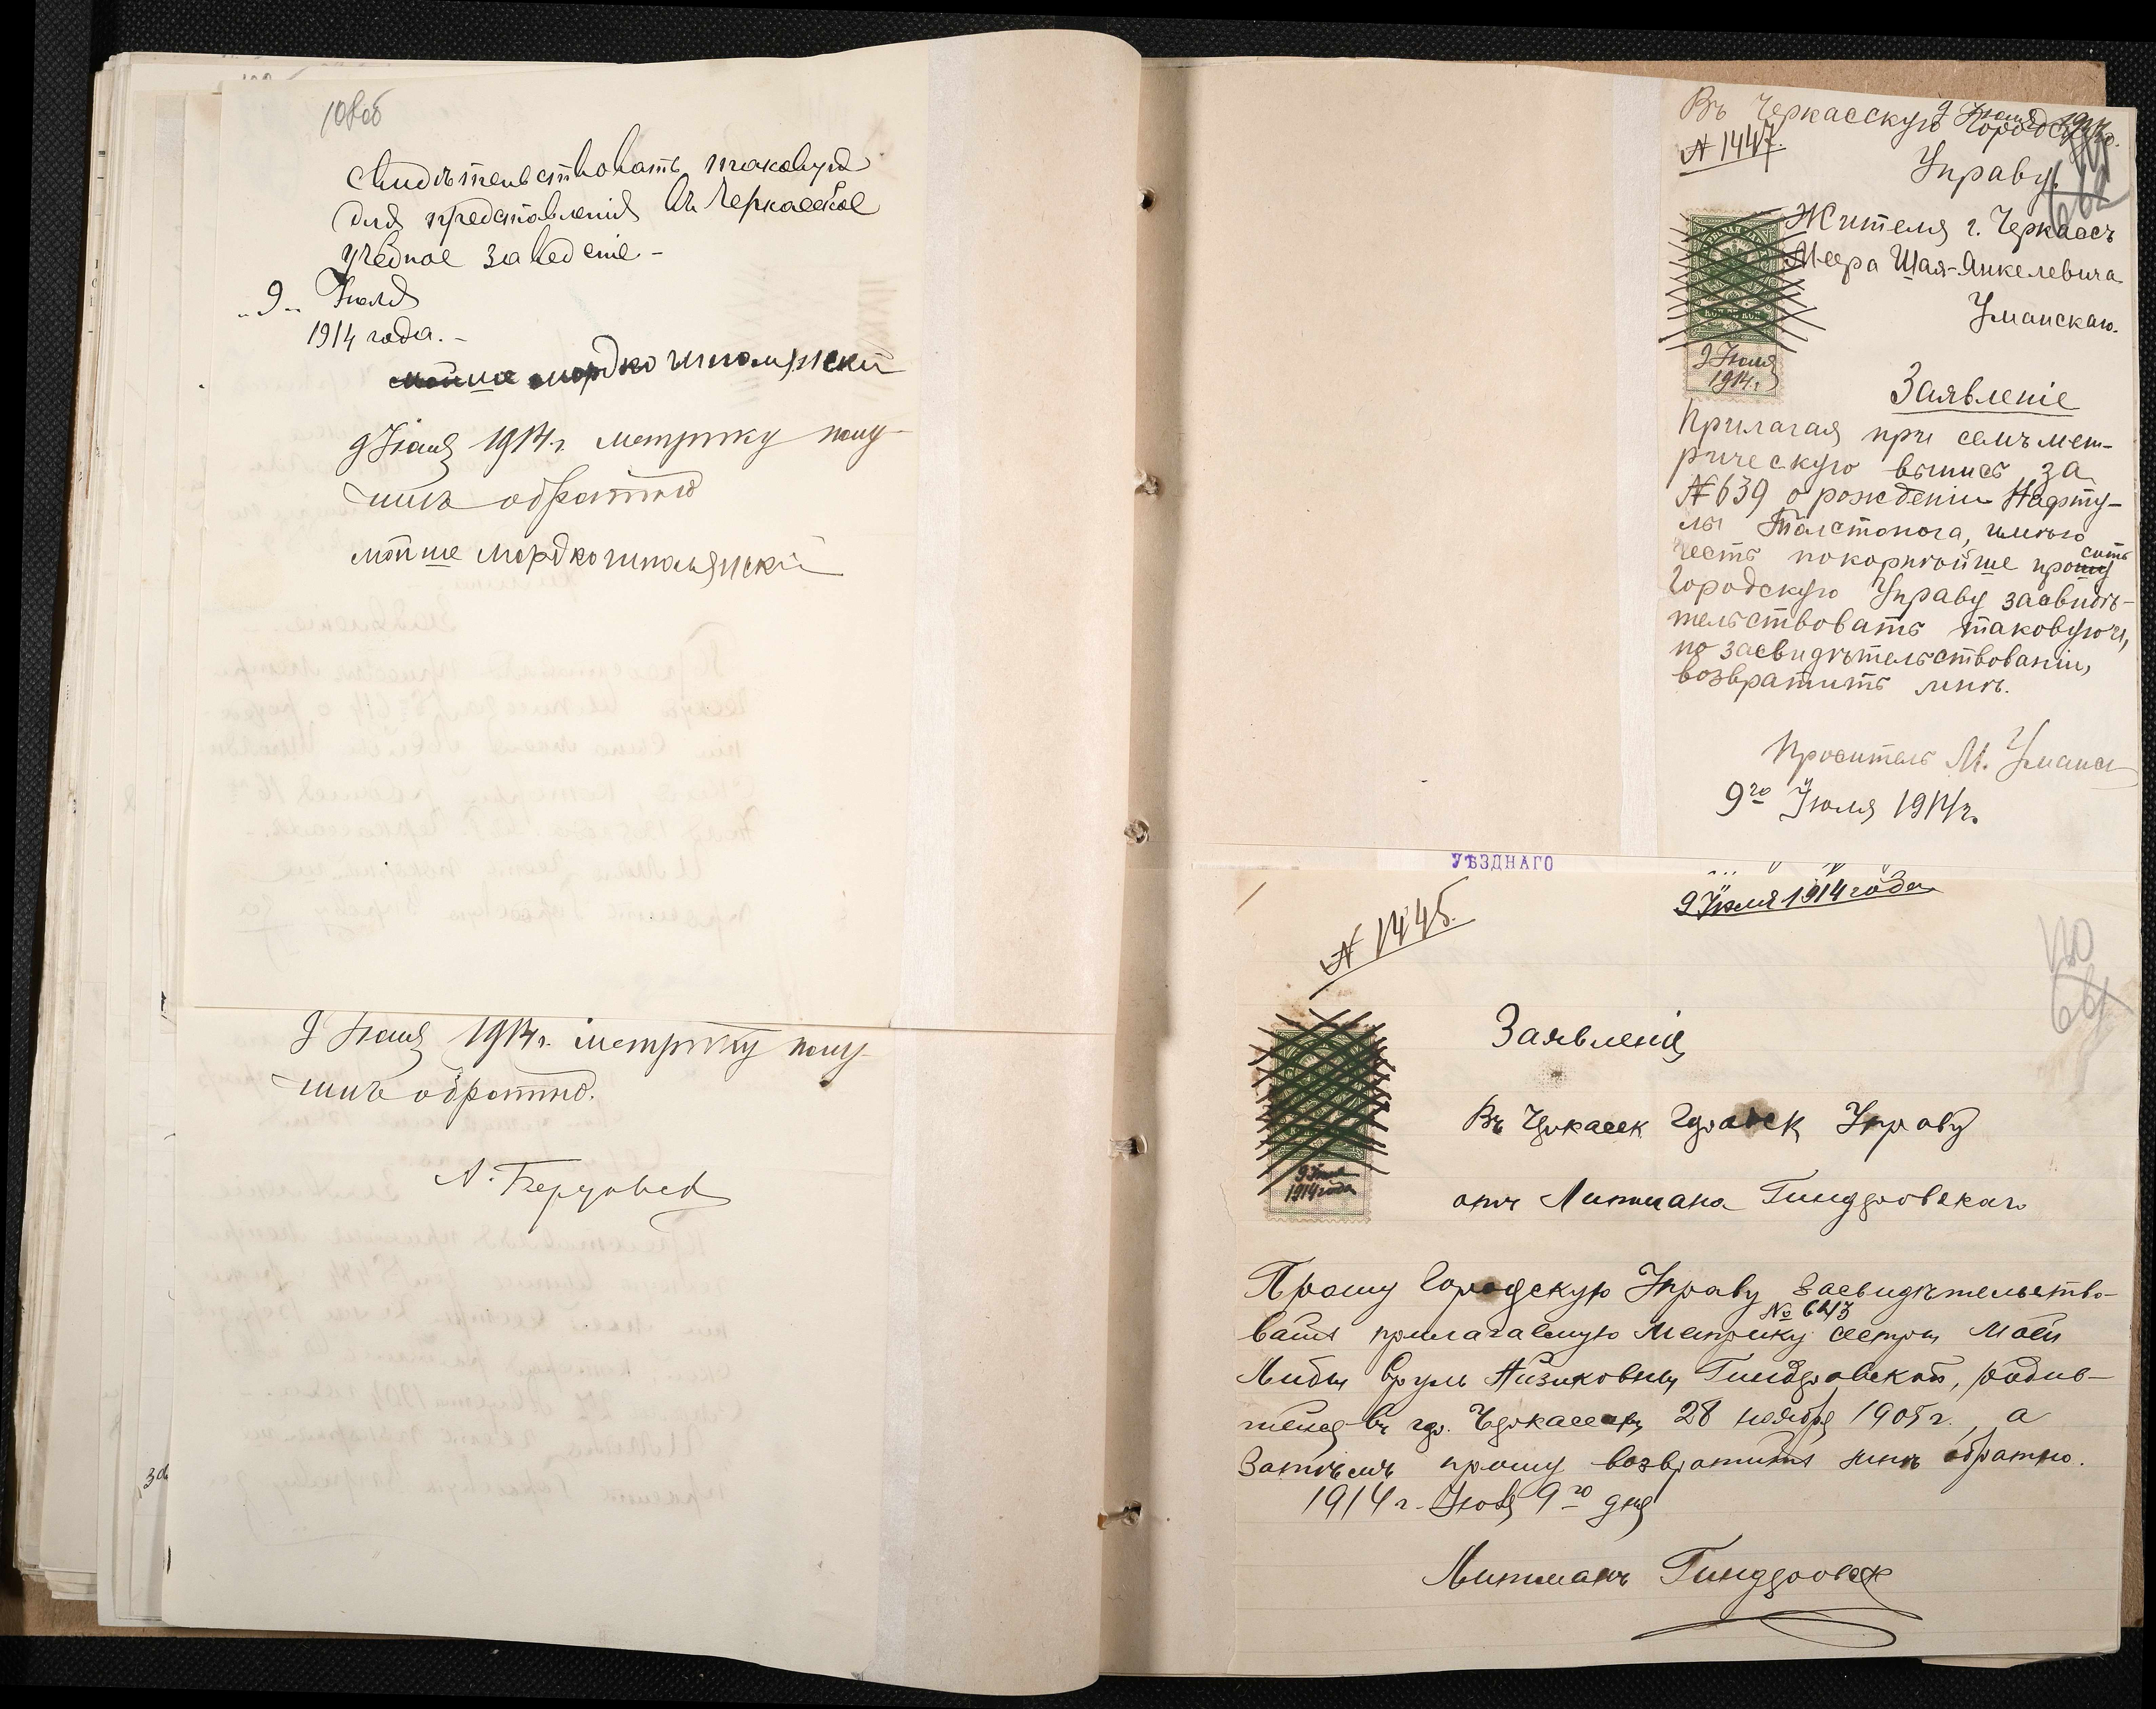 108об
свидѣтельствовать таковую
для представленія въ Черкасское
учебное заведеніе -
"9" Іюля
1914 года. -
мойше мордко шполянски
9 Іюля 1914 г. метрику полу-
чилъ обратно
мойше мордко шполянскій
9 Іюля 1914 г. метрику полу-
чилъ обратно.
Въ Черкасскую Городскую
9 Іюля 1914
№ 1447.
Управу.
Жителя г. Черкассъ
Меера Шая-Янкелевича
Уманскаго.
9 Іюля
1914 г.
Заявленіе
Прилагая при семъ мет-
рическую выпись за
№ 639 о рожденіи Нафту-
лы Толстонога, имѣю
честь покорнѣйше просить
Городскую Управу засвидѣ-
тельствовать таковую и,
по засвидѣтельствованіи,
возвратить мнѣ.
Проситель М. Уманск
9го Іюля 1914 г.
УѢЗДНАГО
9 Іюля 1914 года
№ 1445.
110
Заявленія
Въ Черкасск Городск Управу
9 Іюля
1914 года
отъ Литмана Гиндровскаго
Прошу Городскую Управу засвидѣтельство-
№ 643
вать прилагаемую Метрику сестры Моей
Либы Айзиковны Гиндровской, родив-
шейся въ гор. Черкассахъ 28 ноября 1905 г., а
Затѣмъ прошу возвратить мнѣ обратно.
1914 г. Іюля 9го дня
Литманъ Гиндровск